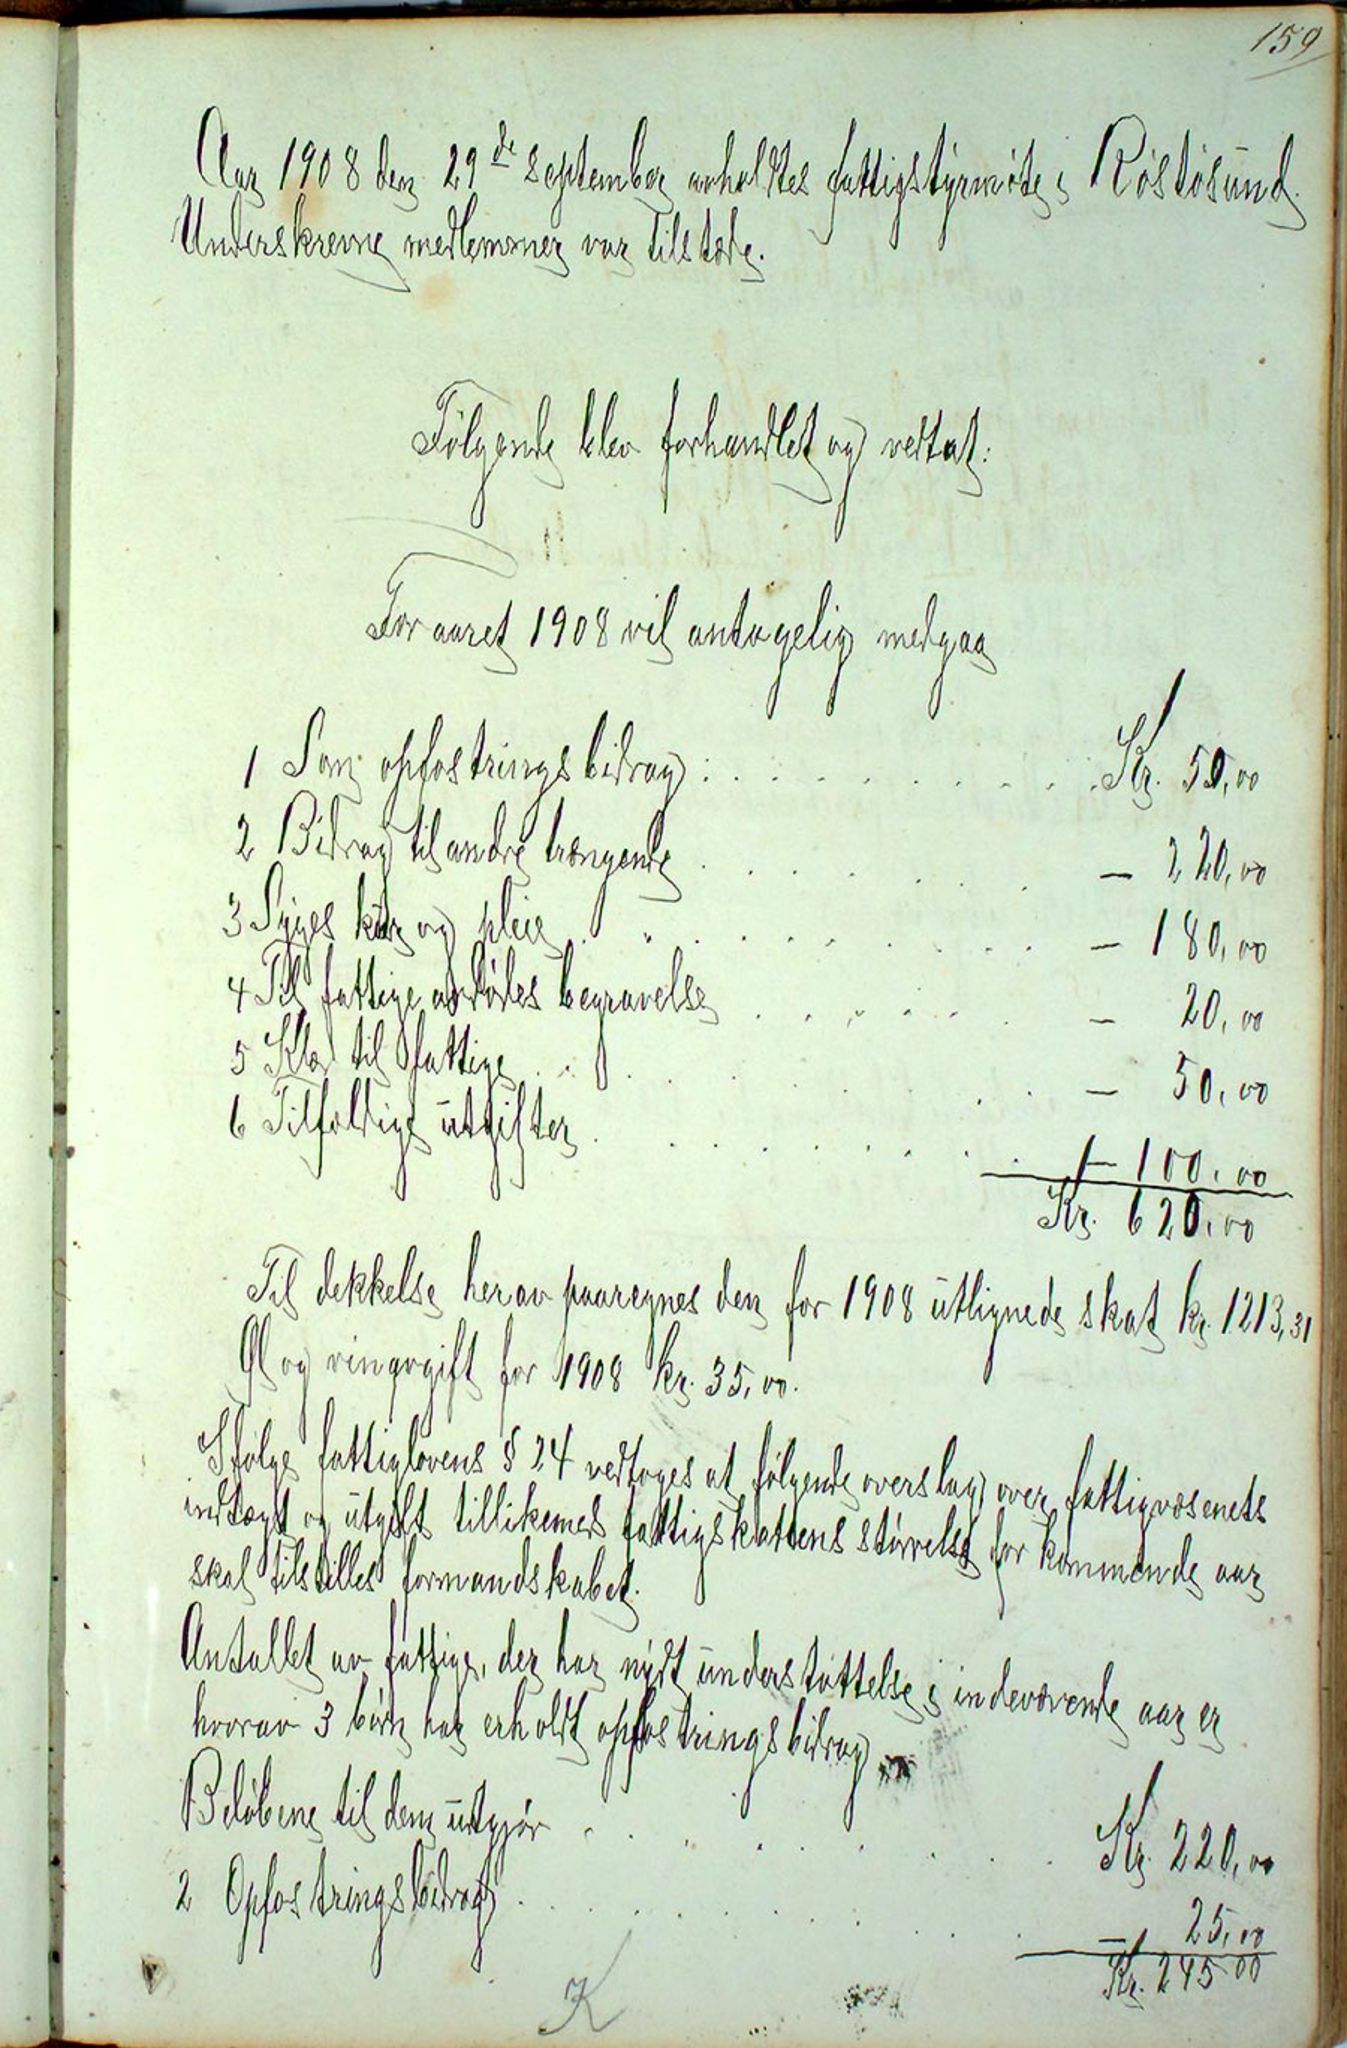 159
Aar 1908 den 29de September avholdtes fattigstyrmøte i Røstøsund.
Underskrevne medlemmer var tilstede.
Følgende blev forhandlet og vedtat:
For aaret 1908 vil antagelig medgaa
1 Som opfostringsbidrag: . . . . . . . . . . Kr. 50,00
2 Bidrag til andre trængende . . . . . . . — 220,00
3 Syges kur og pleie . . . . . . . . . . — 180,00
4 Til fattige avdødes begravelse . . . . . . — 20,00
5 Klær til fattige . . . . . . . . — 50,00
6 Tilfældige utgifter . . . . . . . . — 100,00
Kr. 620,00
Til dekkelse herav paaregnes den for 1908 utlignede skat kr. 1213,31
Øl og vinavgift for 1908 kr. 35,00.
Ifølge fattiglovens § 24 vedtoges at følgende overslag over fattigvæsenets
indtægt og utgift tillikemed fattigskattens størrelse for kommende aar
skal tilstilles formandskabet.
Antallet av fattige, der har nydt understøttelse i indeværende aar er
hvorav 3 børn har erholdt opfostringsbidrag
Beløbene til dem utgjør . . . . . . . . Kr. 220,00
2 Opfostringsbidrag . . . . . . . . — 25,00
Kr. 245 00
K